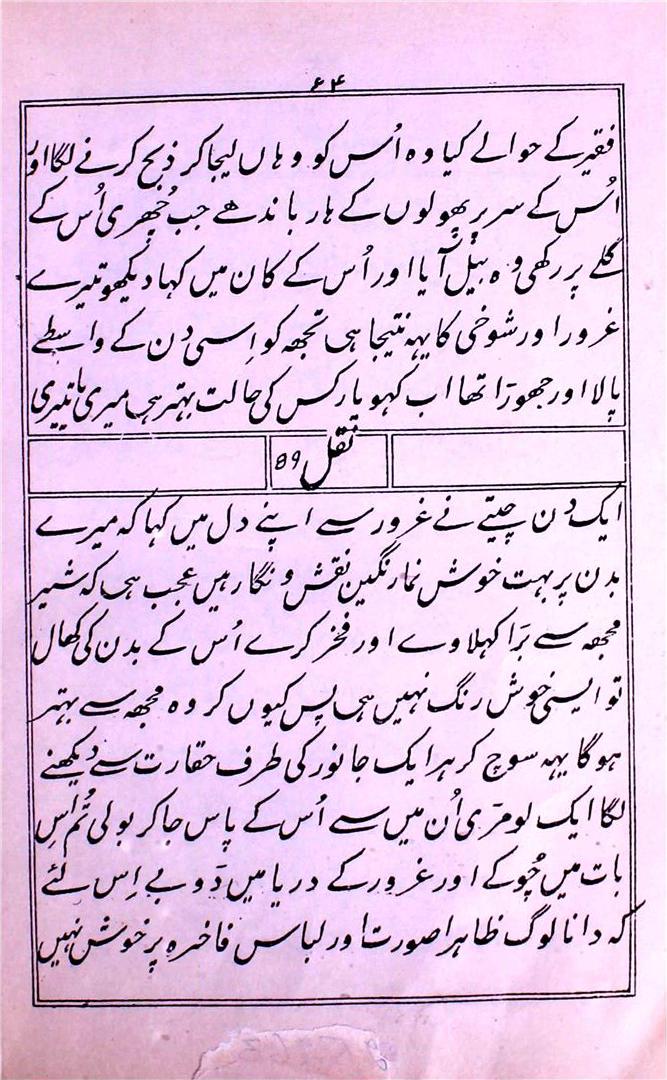 ۶۴
فقیر کے حوالے کیا وہ اُس کو وہاں لیجا کر ذبح کرنے لگا اور
اُس کے سر پر پھولوں کے ہار باندھے جب چُھری اُس کے
گلے پر رکھی وہ بیل آیا اور اُس کے کان میں کہا دیکھو تیرے
غرور اور شوخی کا یہہ نتیجا ہی تجھ کو اِسی دن کے واسطے
پالا اور چھوڑا تھا اب کہو یار کس کی حالت بہتر ہی میری یا تیری
نقل ۵۹
ایک دن چیتے نے غرور سے اپنے دل میں کہا کہ میرے
بدن پر بہت خوش نما رنگین نقش و نگار ہیں عجب ہی کہ شیر
مجھہ سے بَرَا کہلاوے اور فخر کرے اُس کے بدن کی کھال
تو ایسی خوش رنگ نہیں ہی پس کیوں کر وہ مجھہ سے بہتر
ہوگا یہہ سوچ کر ہر ایک جانور کی طرف حقارت سے دیکھنے
لگا ایک لومرَی اُن میں سے اُس کے پاس جا کر بولی تُم اِس
بات میں چُوکے اور غرور کے دریا میں دَوبے اِس لئے
کہ دانا لوگ ظاہرا صورت اور لباس فاخرہ پر خوش نہیں